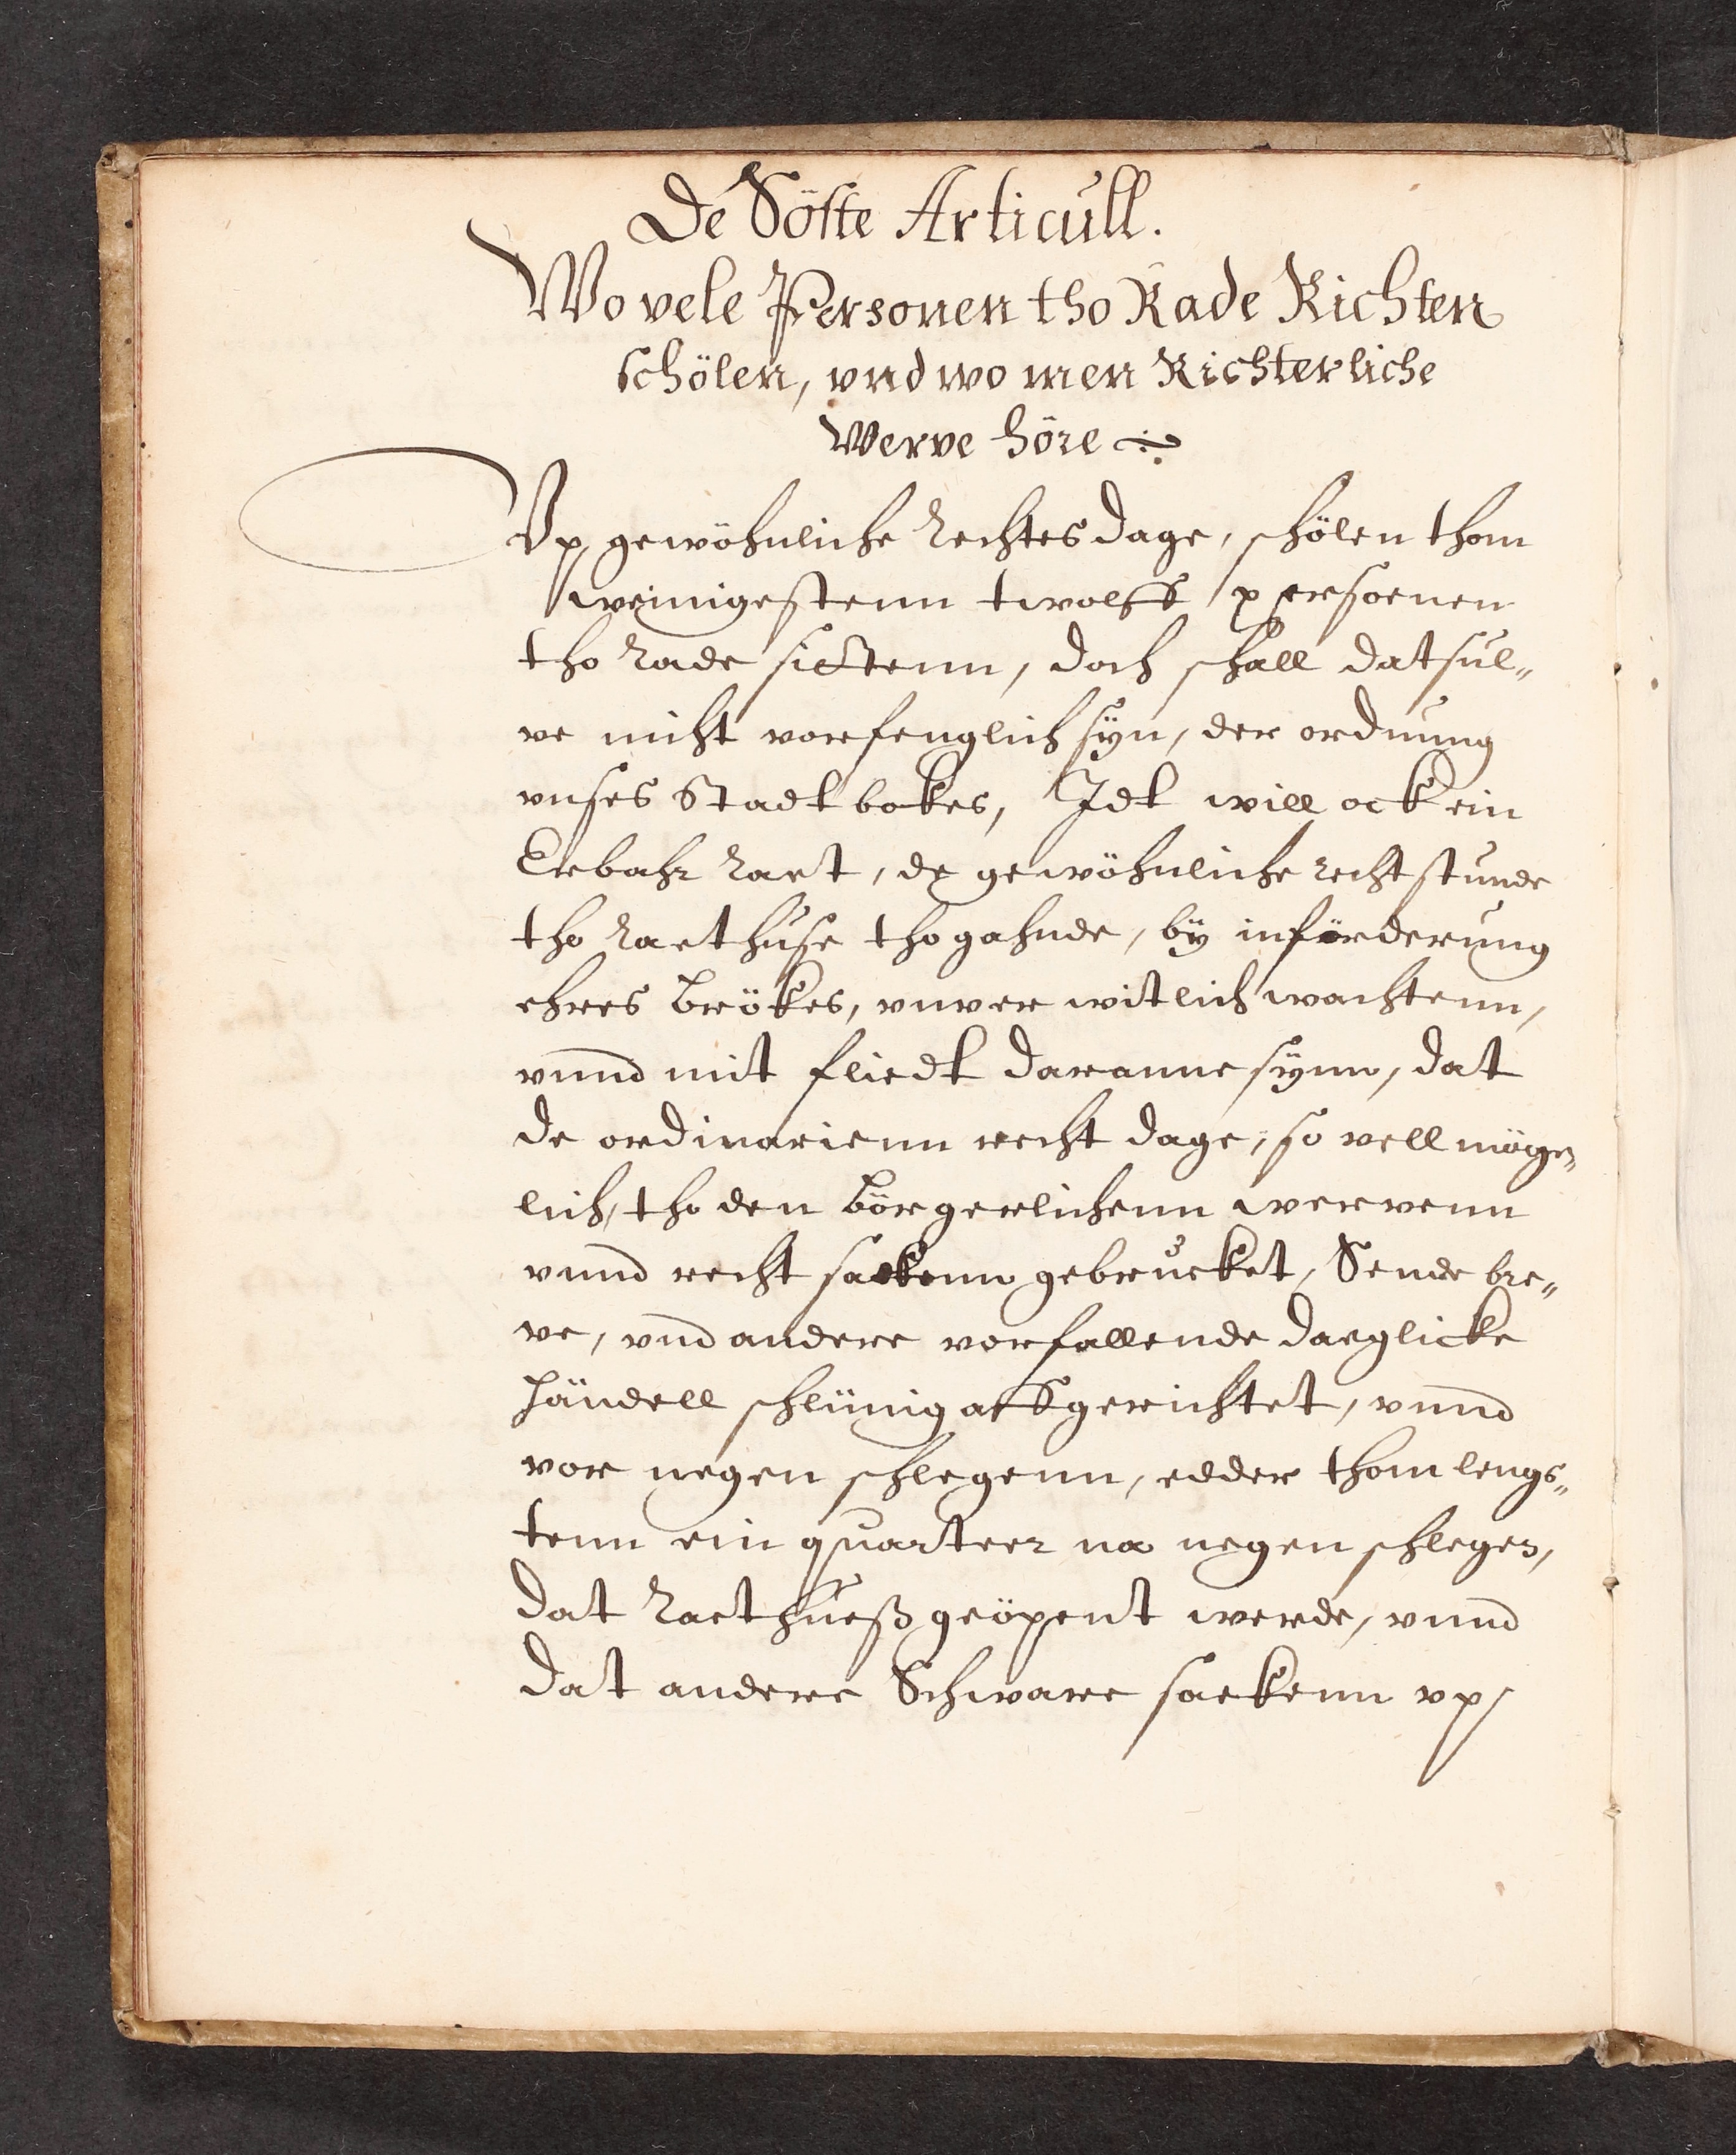 De Söste Articull.
Wo vele Personen tho Rade Richten
schölen, vnd wo men Richterliche
Werve höre
Vp gewöhnliche Rechtes dage, schölen thom
weinigestenn twolff personen
tho Rade sittenn, doch schall datsül„
ve nicht vorfenglich sÿn, der ordnung
vnses Stadtbokes, Idt will ock ein
Erbahr Raet, de gewöhnliche recht stunde
tho Raethuse tho gahnde, bÿ införderung
ehres Brökes, vnverwitlich wachtenn,
vnnd mit fliedt daranne sÿnn, dat
de ordinarienn recht dage, so vell möge„
lich, tho den Börgerlichenn wervenn
vnnd recht saekenn gebrucket, Sende bre„
ve, vnd andere vorfallende daeglicke
Händell schlünig affgerichtet, vnnd
vor negen schlegenn, edder thom lengs„
tenn ein quarteer na negen schlegen,
dat Raethueß geöpent werde, vnnd
dat andere Schware saekenn vp